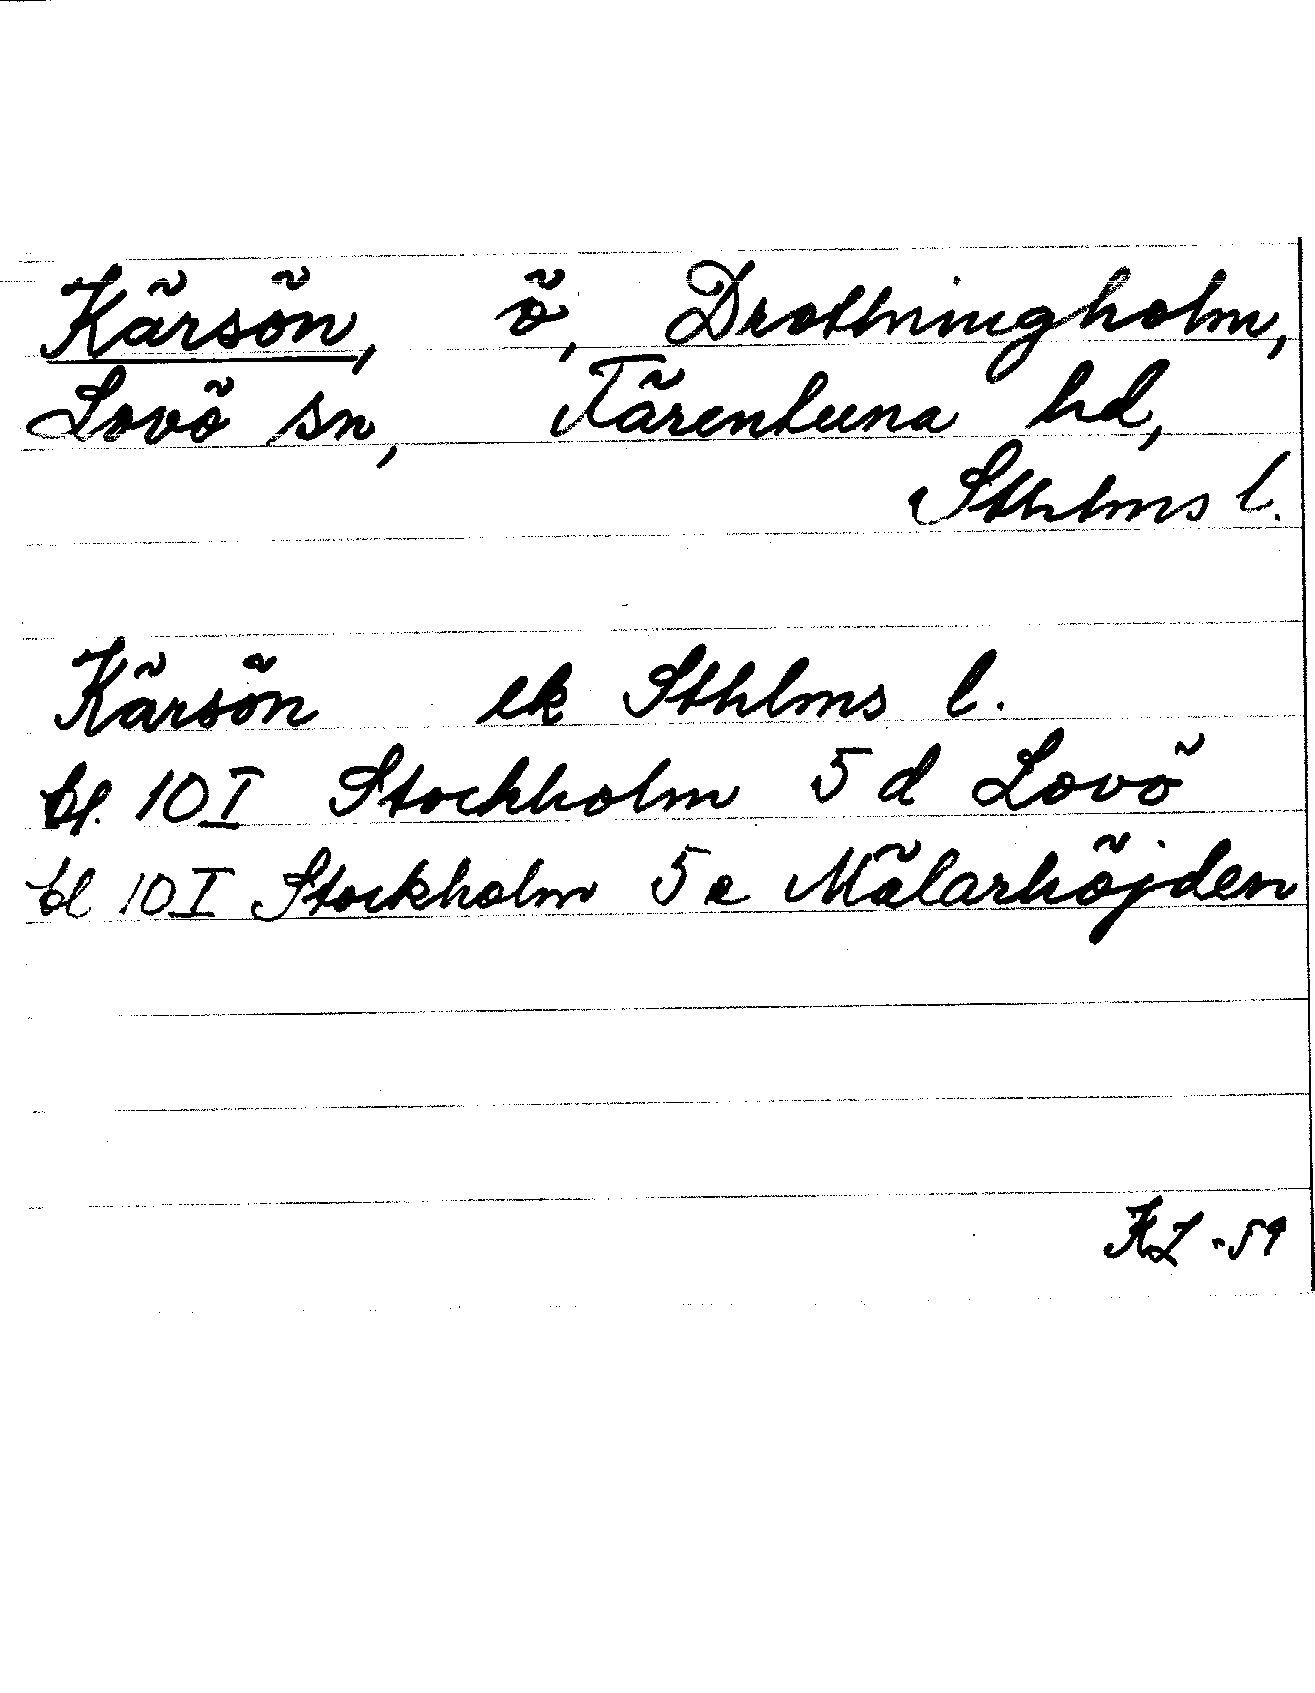 Kärsön, ö, Drottningholm,
Lovö sn, Färentuna hd,
Sthlms l.
Kärsön ek Sthlms l.
bl. 10 I Stockholm 5 d Lovö
bl 10 I Stockholm 5 e Mälarhöjden
KL -59